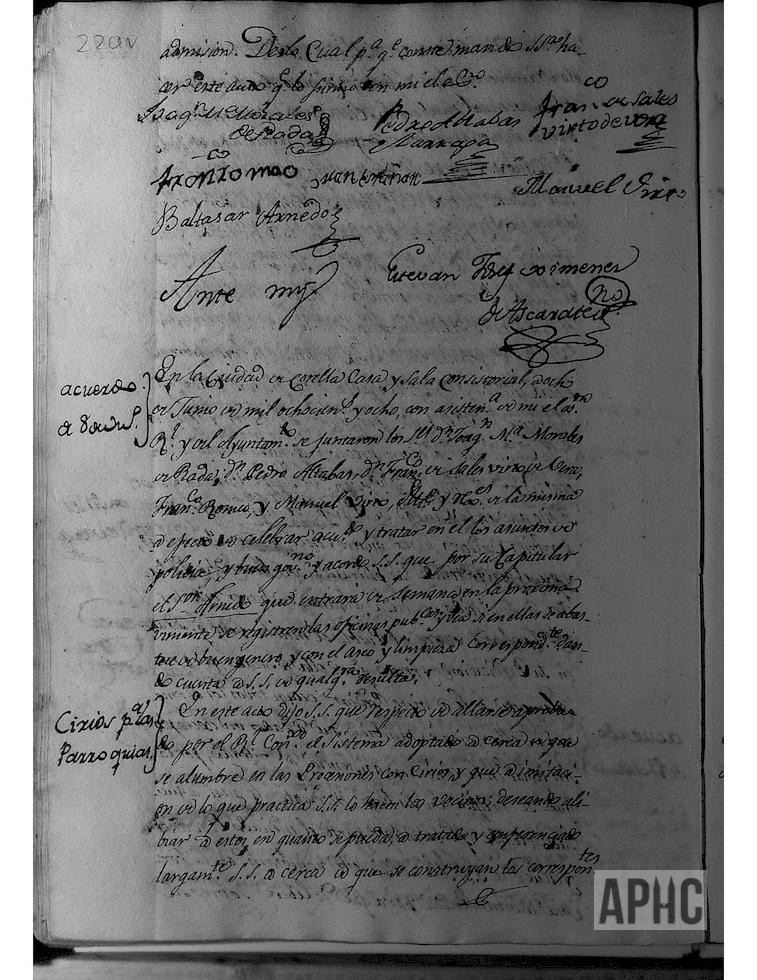 229v
admision. De lo Cual pa. qe. conste mando SSa. ha-
cer este auto qe. lo firmo con mi el Eno.
Joaqn. Ma. Morales
de Rada
Pedro Altabas
Franco. de Sales
Virto de Vera
Franco. Romeo
Manuel Virto
Baltasar Arnedo
Ante my
Estevan Fely Ximenez
de Ascarate
no
acuerdo
En la Ciudad de Corella Casa y Sala Consistorial, a ocho
de Junio de mil ochocients. y ocho, con asistena. de mi el
Rl. y del Ayuntamto. se juntaron los Srs. Dn. Joaqn. Ma. Morales
de Rada, Dn. Pedro Altabas, Dn. Franco. de Sales Virto de Vera,
Franco. Romeo, y Manuel Virto, de la misma
a efecto de celebrar acudo. y tratar en el los asuntos de
policia y buen govno. y acordo S.S. que por su Capitular
el Sor. Arnedo que entrará de semana en la proxima
viniente se registren las oficinas pubcas. y vea si en ellas se abas-
tece de buen genero, y con el aseo y limpieza correspondte. dan-
do cuenta a S.S. de qualqra. resulta.
Cirios pa. las
Parroquias
En este acto dijo S.S. que respecto de allarse aproba-
do por el Rl. Conso. el Sistema adoptado a cerca de que
se alumbre en las Procesiones con Cirios, y que a imitaci-
on de lo que practica S.S. lo hacen los vecinos; deseando ali-
biar a estos en quanto se pueda, a tratado y conferenciado
largamte. S.S. a cerca de que se construyan los correspontes.
APHC